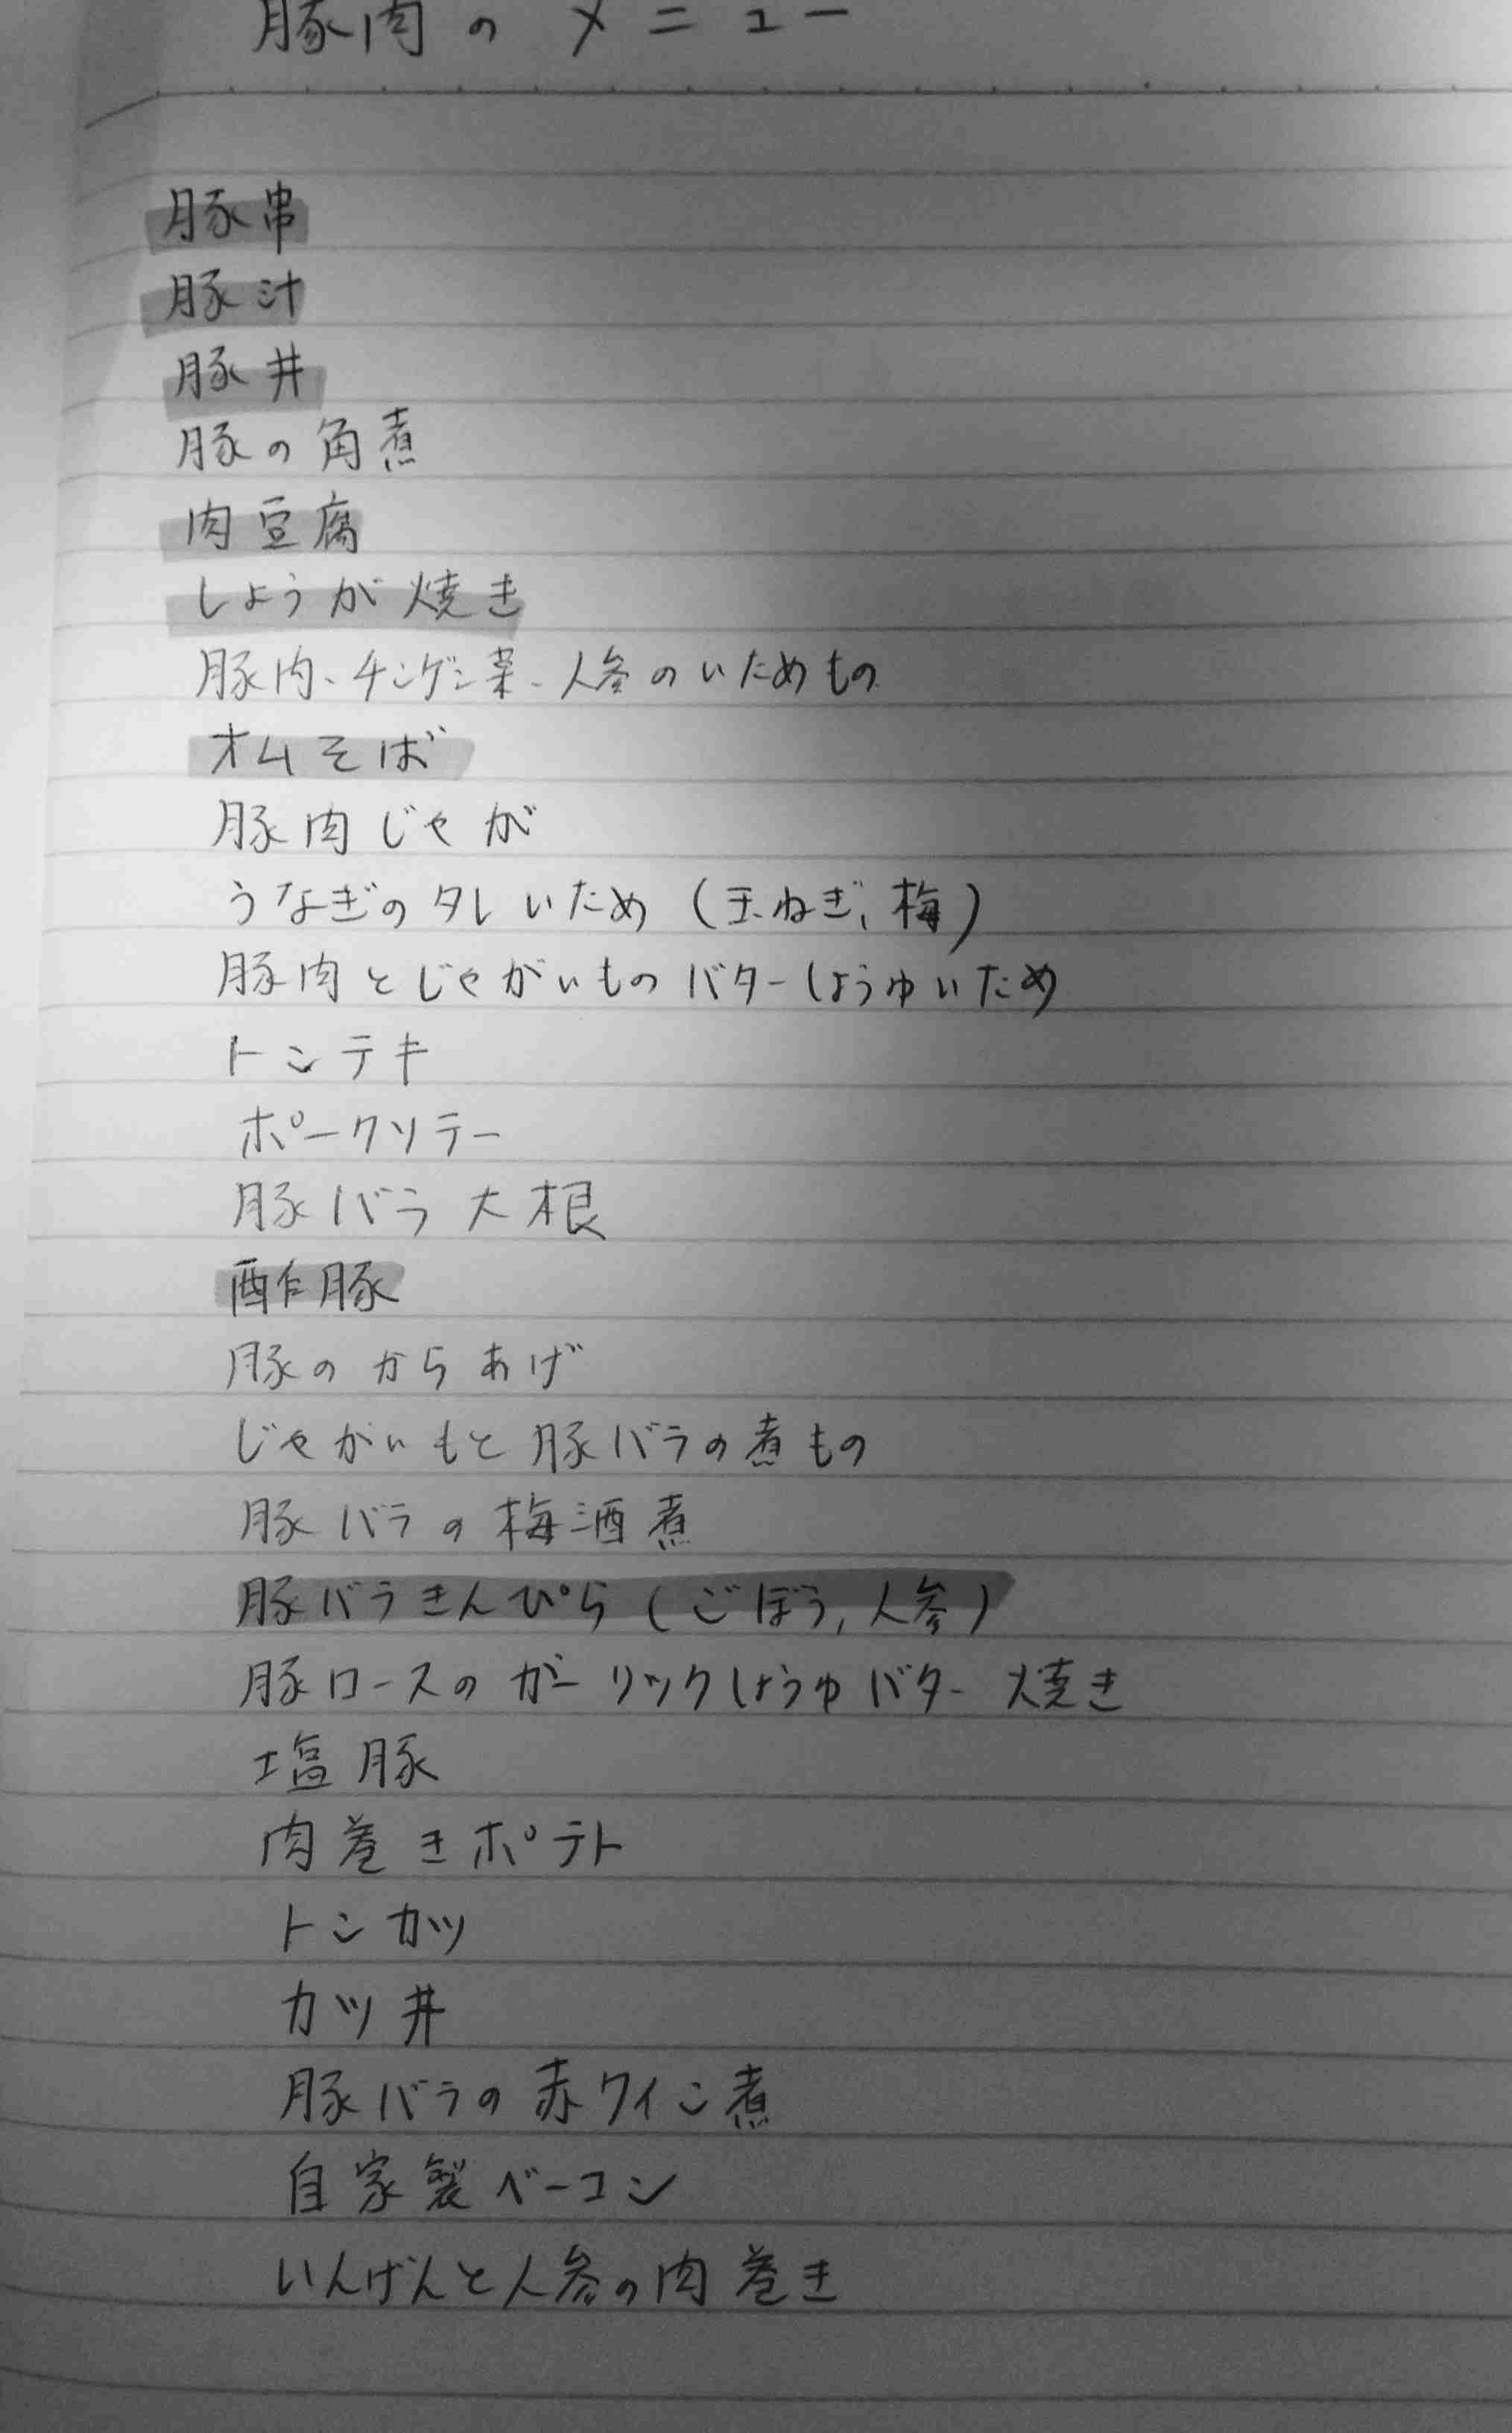 豚肉のメニュー
豚串
豚汁
豚丼
豚の角煮
肉豆腐
しょうが焼き
豚肉、チンゲン菜、人参のいためもの
オムそば
豚肉じゃが
うなぎのタレいため(玉ねぎ、梅)
豚肉とじゃがいものバターしょうゆいため
トンテキ
ポークソテー
豚バラ大根
酢豚
豚のからあげ
じゃがいもと豚バラの煮もの
豚バラの梅酒煮
豚バラきんぴら(ごぼう,人参)
豚ロースのガーリックしょうゆバター焼き
塩豚
肉巻きポテト
トンカツ
カツ丼
豚バラの赤ワイン煮
自家製ベーコン
いんげんと人参の肉巻き